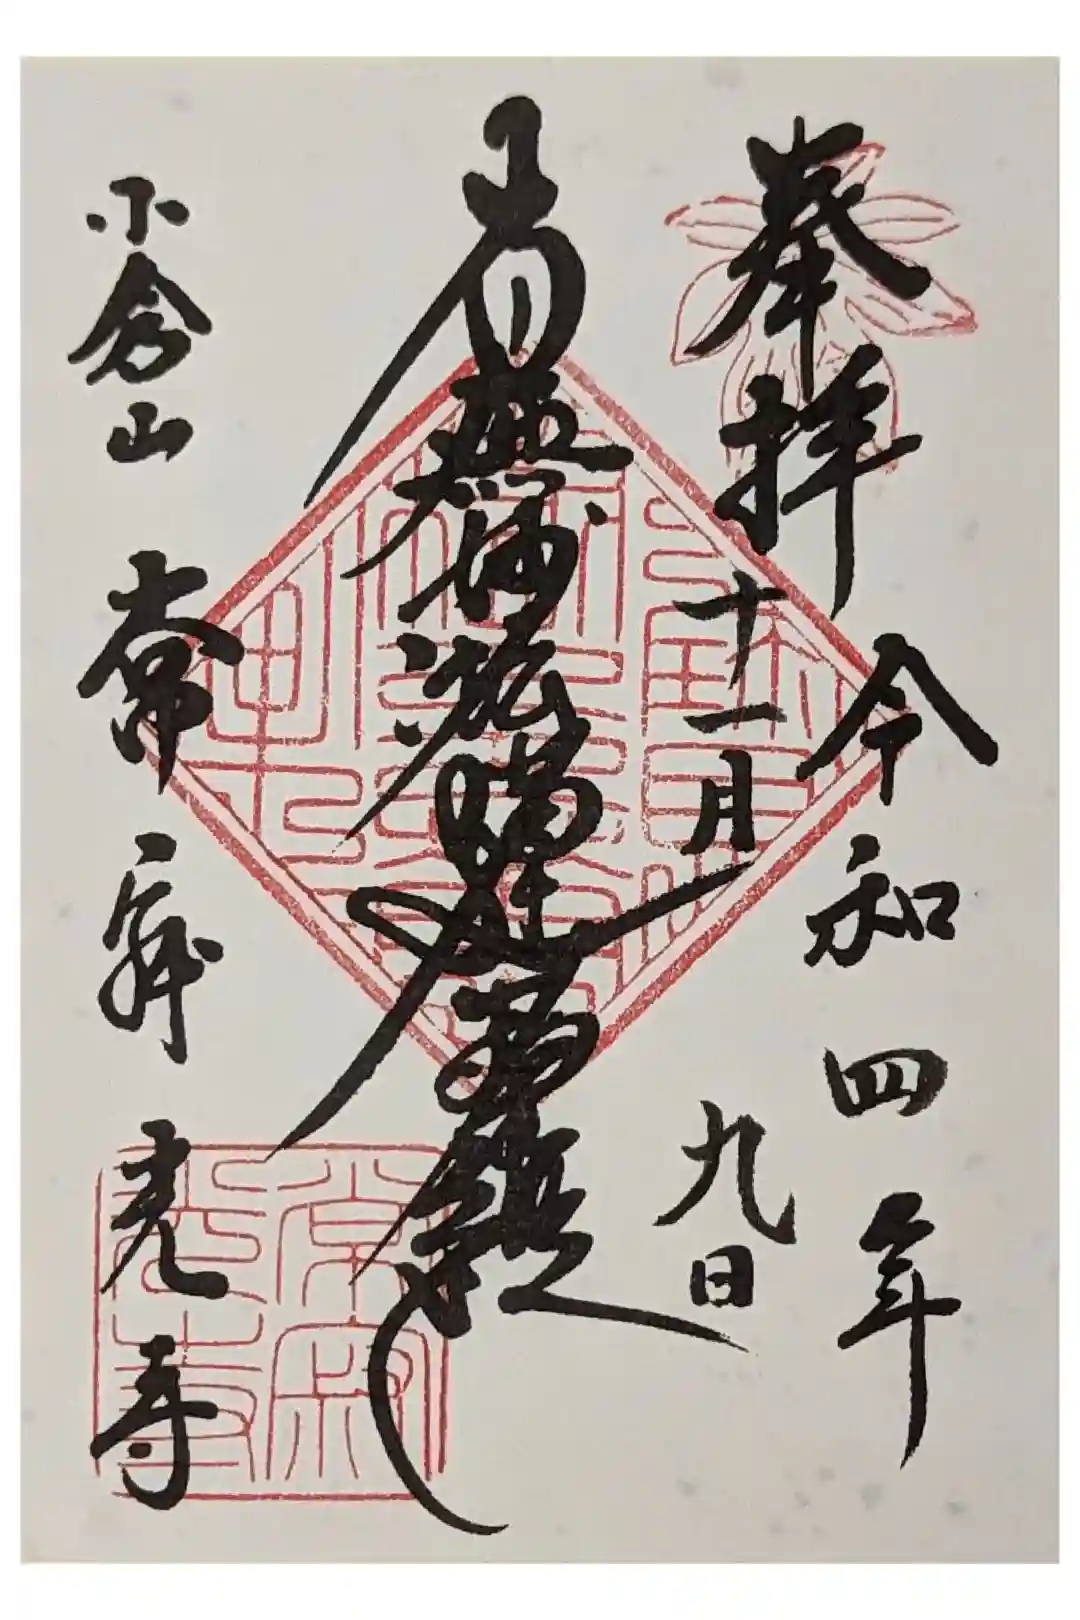 奉拝
令和四年
十一月九日
南無妙法蓮華経
小倉山 常寂光寺
常寂
光寺